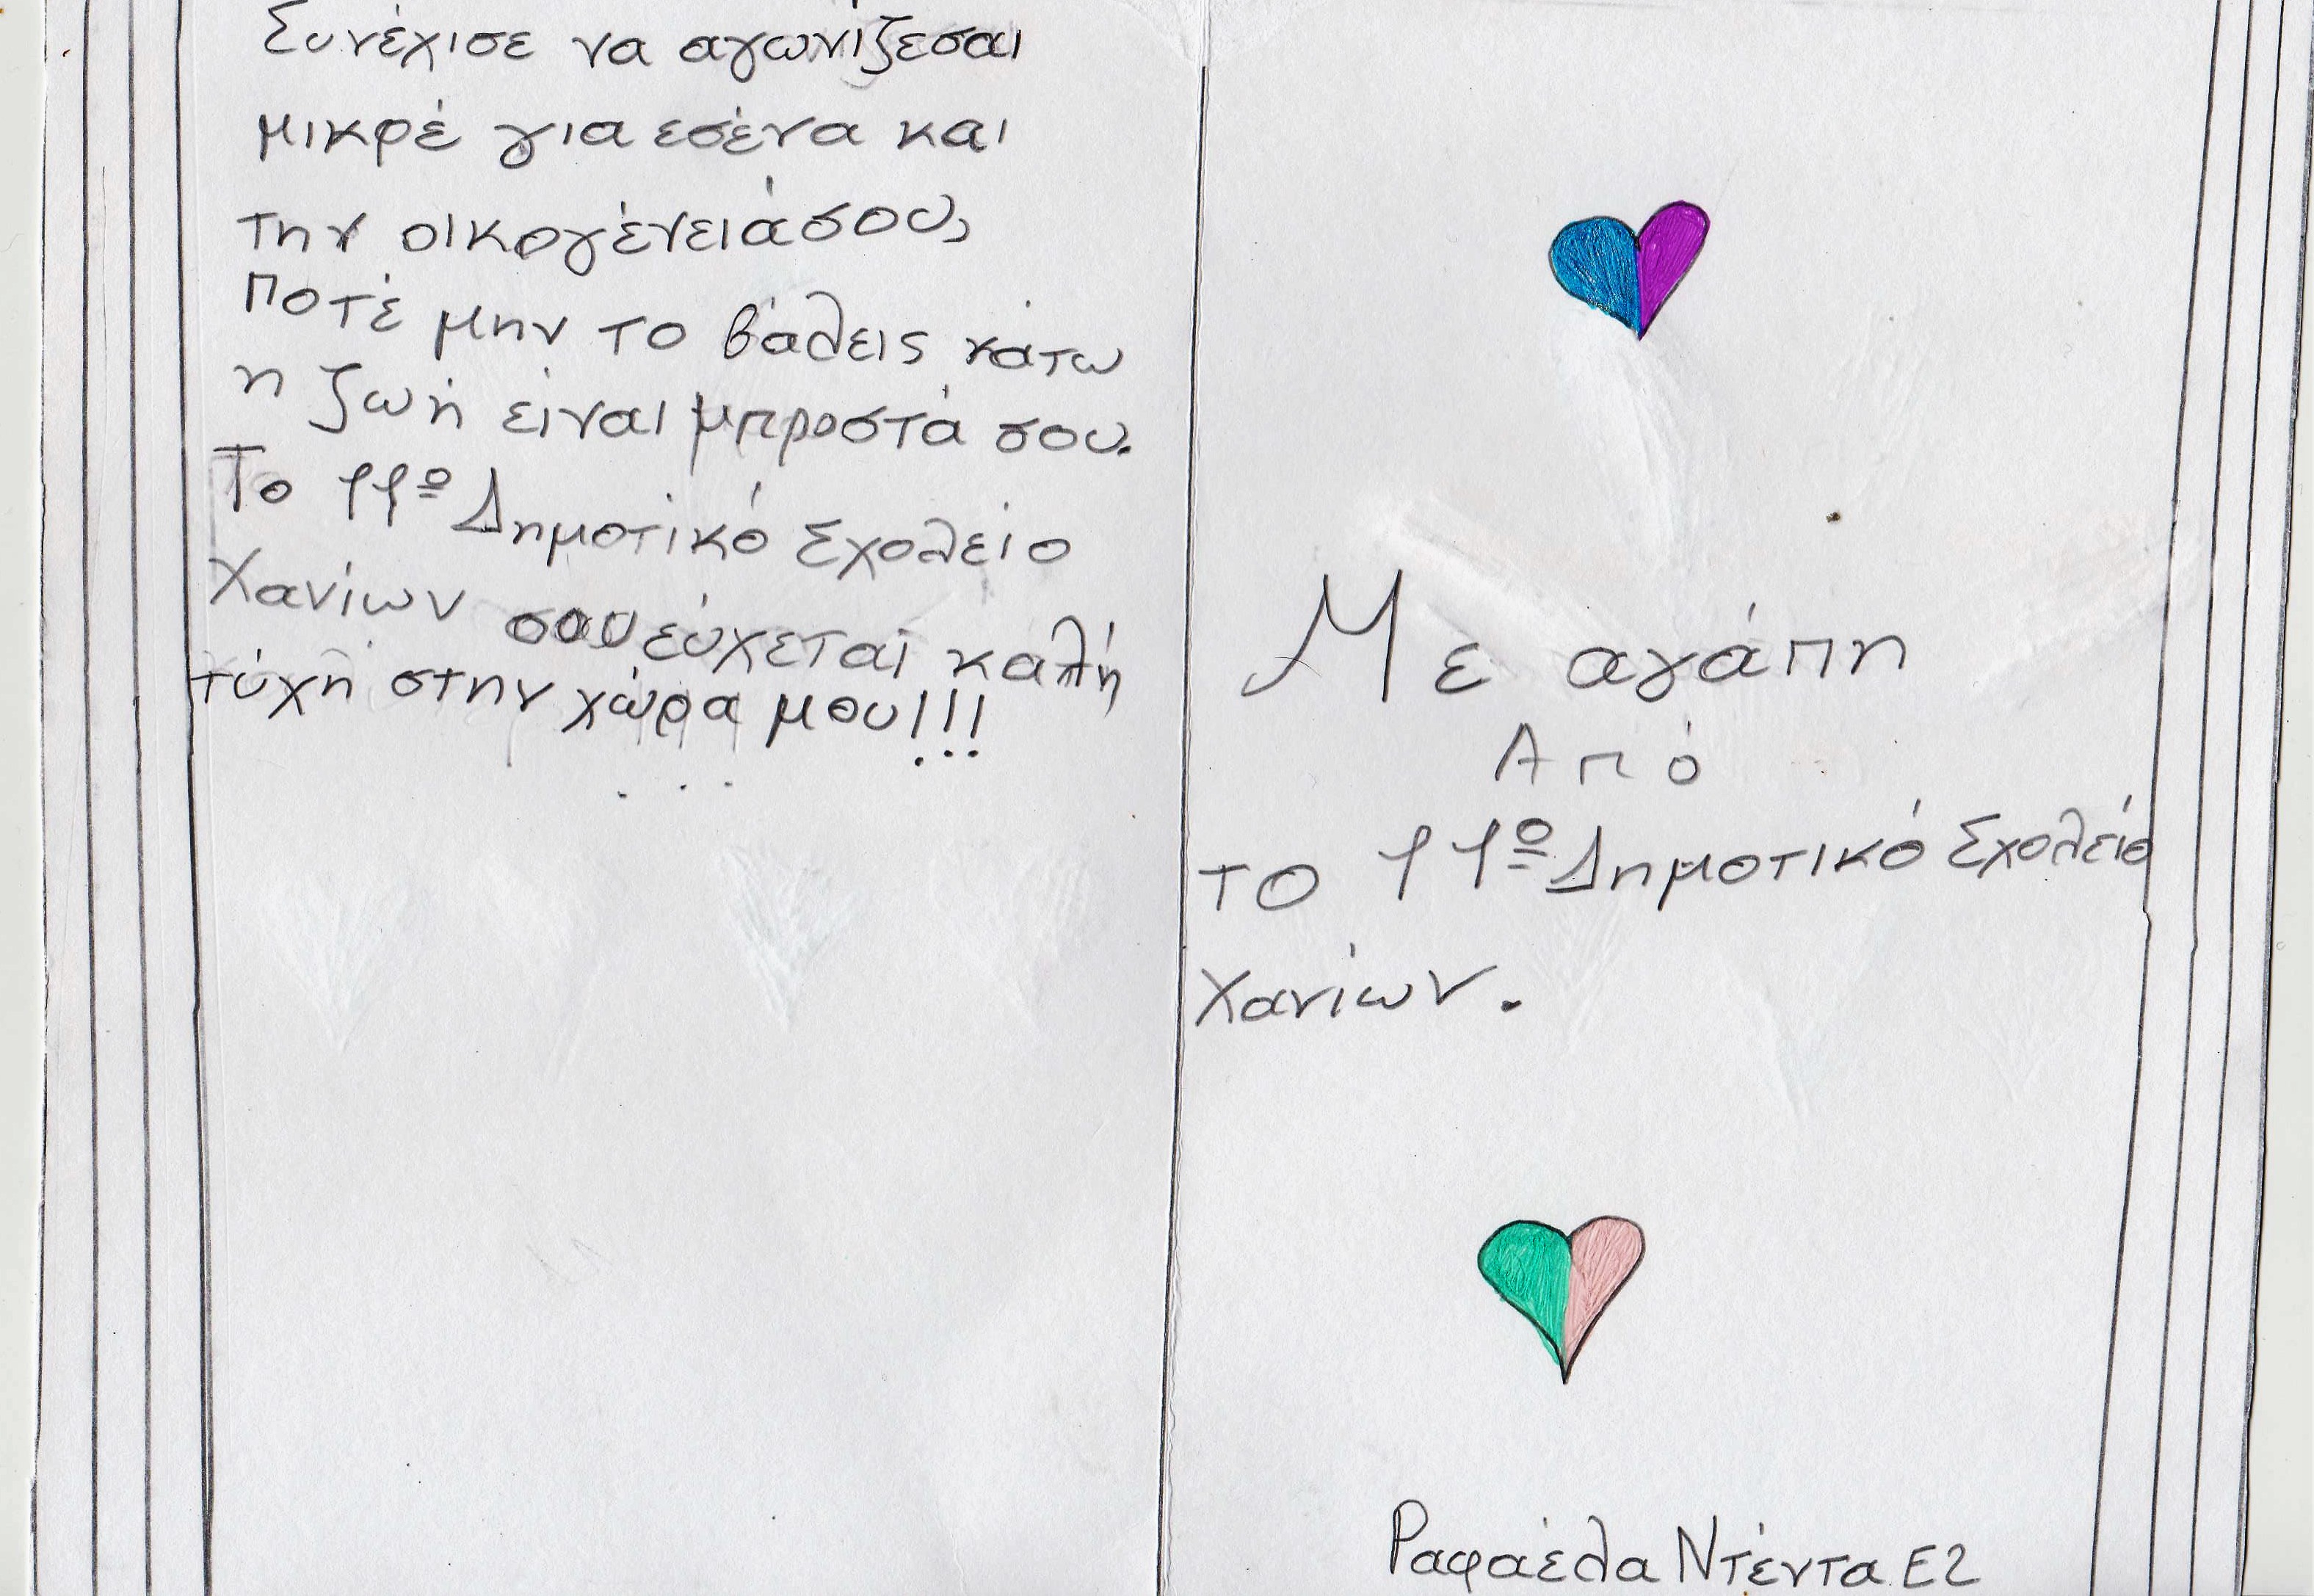 Συνέχισε να αγωνίζεσαι
μικρέ για εσένα και
την οικογένειά σου,
Ποτέ μην το βάλεις κάτω
η ζωή είναι μπροστά σου.
Το 11º Δημοτικό Σχολείο
Χανίων σου εύχεται καλή
τύχη στην χώρα μου!!!
Με αγάπη
Από
το 11º Δημοτικό Σχολείο
Χανίων.
Ραφαέλα Ντέντα Ε2